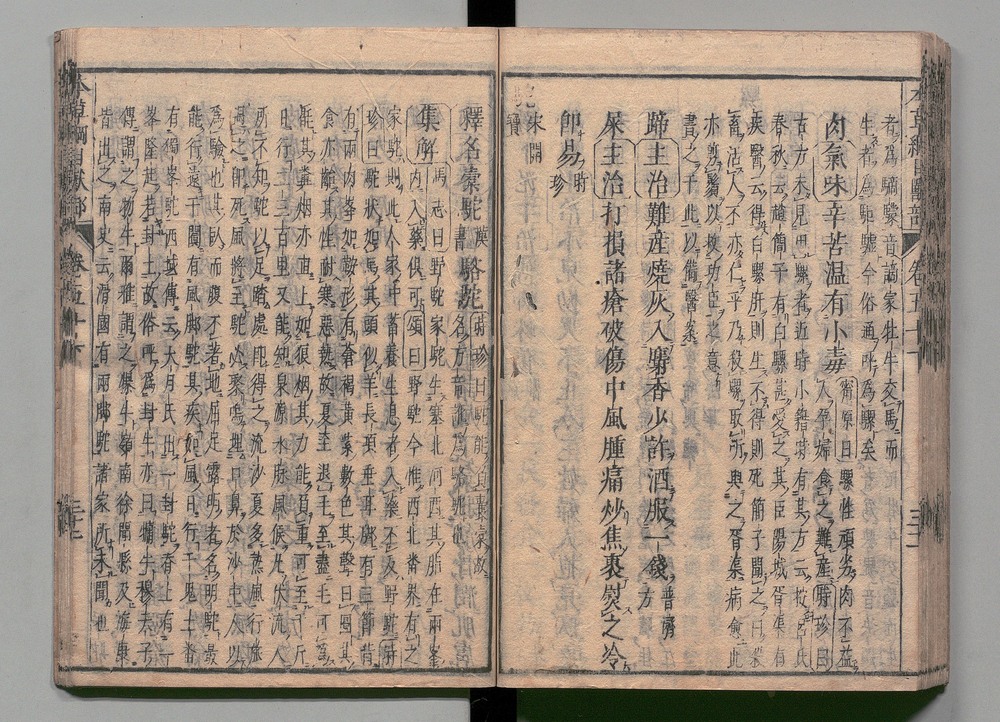 者爲騊驉音謫家牡牛交馬而
生者爲駏驉今俗通呼爲騾矣
肉氣味辛苦温有小毒寗原曰騾性頑劣肉不益
人孕婦食之難産時珍曰
古方未見用騾者近時小籍時有其方云按吕氏
春秋云趙簡子有白騾甚愛之其臣陽城胥渠有
疾醫云得白騾肝則生不得則死簡子聞之曰殺
畜活人不亦仁乎乃殺騾取肝與之胥渠病愈此
亦剪鬚以救功臣之意
書之于此以備醫案
蹄主治難産燒灰入麝香少許酒服一錢普濟
方
屎主治打損諸瘡破傷中風腫痛炒焦裹熨之冷
卽易時
珍
宋開
寳
釋名橐駝漢書駱駝時珍曰駝能負囊橐故
名方音訛爲駱駝也
集解馬志曰野駝家駝生塞北河西其脂在兩峯
内入藥俱可頌曰野駝今惟西北番界有之
家駝則此人家畜養生息者入藥不及野駝時
珍曰駝狀如馬其頭似羊長項垂耳脚有三節背
有兩肉峯如鞍形有蒼褐黄紫數色其聲曰圔其
食亦齝其性耐寒惡熱故夏至退毛至盡毛可爲
毼其糞烟亦直上如狼烟其力能負重可至千斤
日行二三百里又能知泉源水脉風候凡伏流人
所不知駝以足踏處卽得之流沙夏多熱風行旅
遇之卽死風將至駝必聚鳴埋口鼻於沙中人以
爲驗也其臥而腹不著地屈足露明者名明駝最
能行遠于闐有風脚駝其疾如風日行千里土番
有獨峯駝西域傳云大月氏出一封駝脊上有一
峯隆起若封土故俗呼爲封牛亦曰㹎牛穆天子
傳謂之牥牛爾雅謂之犦牛嶺南徐聞縣及海康
皆出之南史云滑國有兩脚駝諸家所未聞也